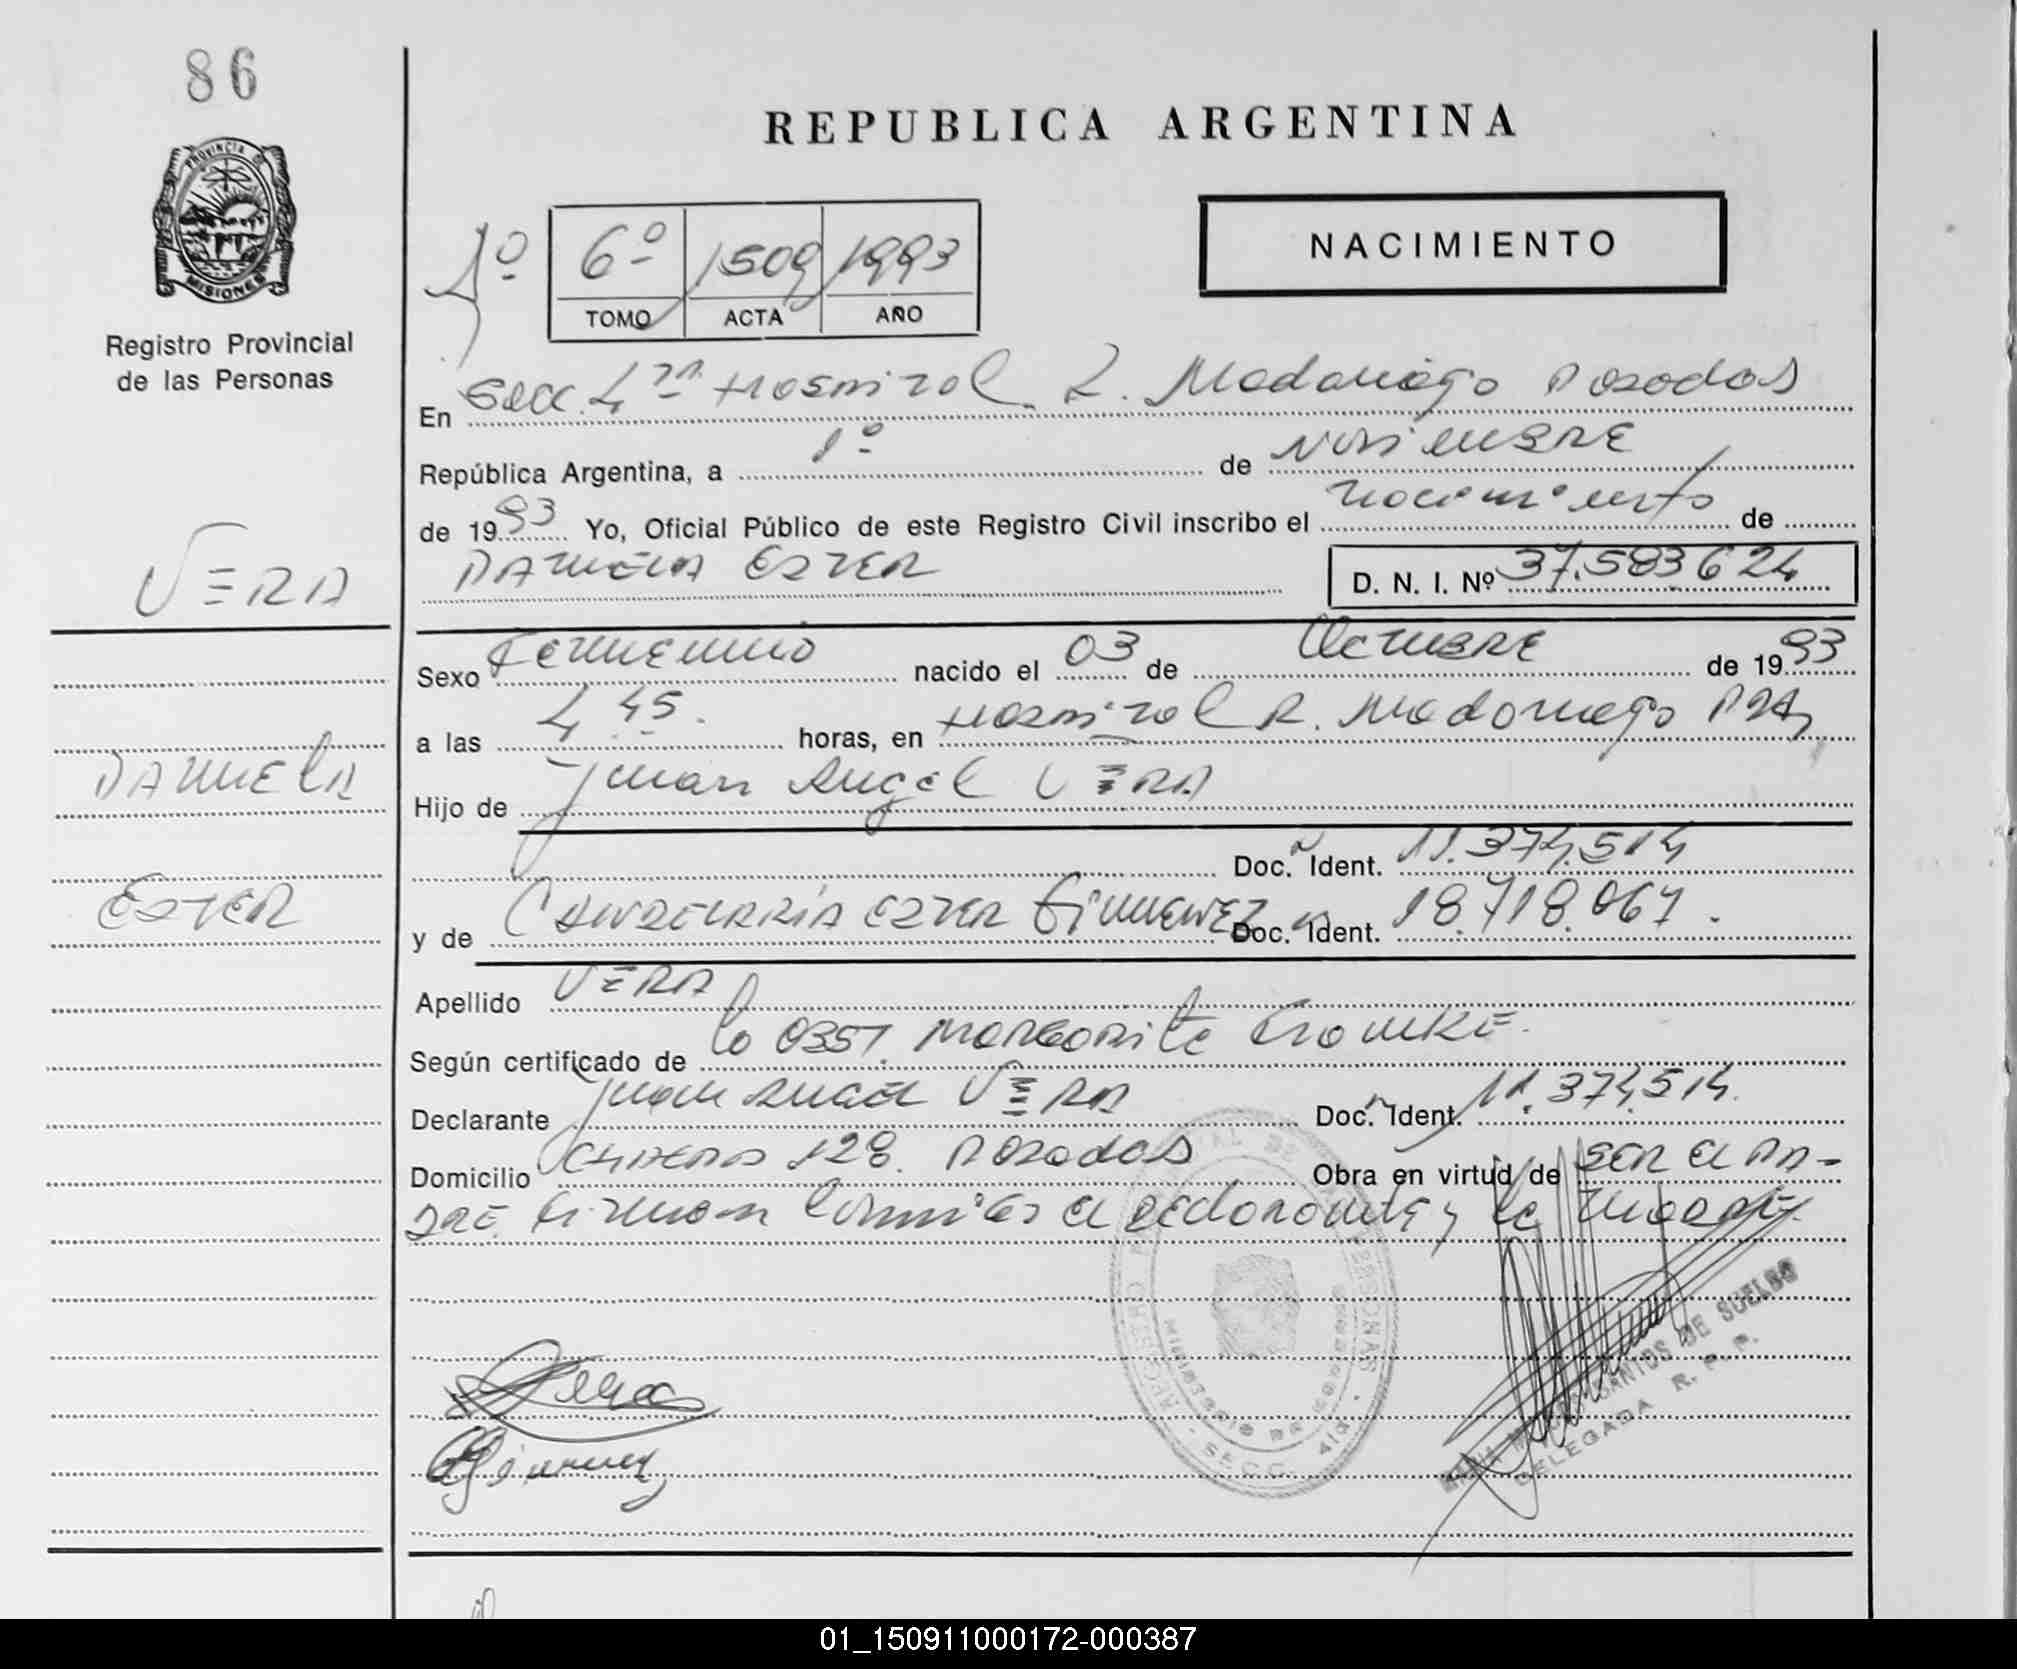 86
REPUBLICA ARGENTINA
PROVINCIA DE
MISIONES
Registro Provincial
de las Personas
NACIMIENTO
6º 1509 1993
TOMO ACTA AÑO
En Secc. 4ta Hospital R. Madariaga Posadas
República Argentina, a 1º de Noviembre
de 1993 Yo, Oficial Público de este Registro Civil inscribo el nacimiento de
Daniela Ester D. N. I. Nº 37.583624
VERA
DANIELA
ESTER
Sexo Femenino nacido el 03 de Octubre de 1993
a las 4 45. horas, en Hospital R. Madariaga Pdas
Hijo de Juan Angel VERA
Doc. Ident. 11.374.514
y de Ester Gimenez Doc. Ident. 18.718.067.
Apellido VERA
Según certificado de la 0357. Margarita
Declarante Juan Angel VERA Doc. Ident. 11.374.514.
Domicilio 128. Posadas Obra en virtud de ser el pa-
dre. Firman el declarante y la madre.
REGISTRO PROVINCIAL DE LAS PERSONAS
MINISTERIO DE GOBIERNO
SECC. 4ta
SANTOS DE SUELDO
DELEGADA R. P. P.
01_150911000172-000387